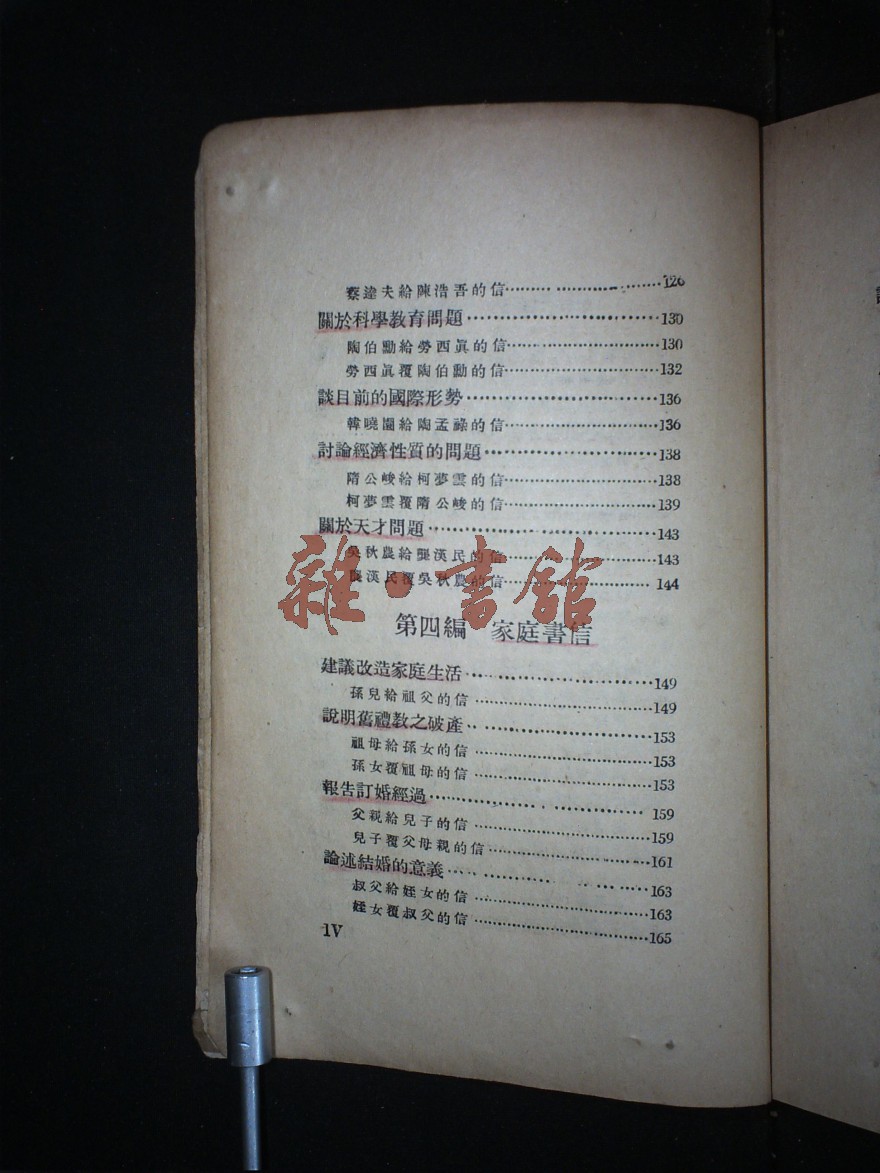 蔡達夫給陳浩吾的信…………………………126
關於科學教育問題…………………………130
陶伯勳給勞西眞的信…………………………130
勞西眞覆陶伯勳的信…………………………132
談目前的國際形勢…………………………136
韓曉園給陶孟祿的信…………………………136
討論經濟性質的問題…………………………138
隋公峻給柯夢雲的信…………………………138
柯夢雲覆隋公峻的信…………………………139
關於天才問題…………………………143
吳秋農給龔漢民的信…………………………143
龔漢民覆吳秋農的信…………………………144
雜·書館
第四編 家庭書信
建議改造家庭生活…………………………149
孫兒給祖父的信…………………………149
說明舊禮敎之破產…………………………153
祖母給孫女的信…………………………153
孫女覆祖母的信…………………………153
報告訂婚經過…………………………159
父親給兒子的信…………………………159
兒子覆父母親的信…………………………161
論述結婚的意義…………………………163
叔父給姪女的信…………………………163
姪女覆叔父的信…………………………165
IV